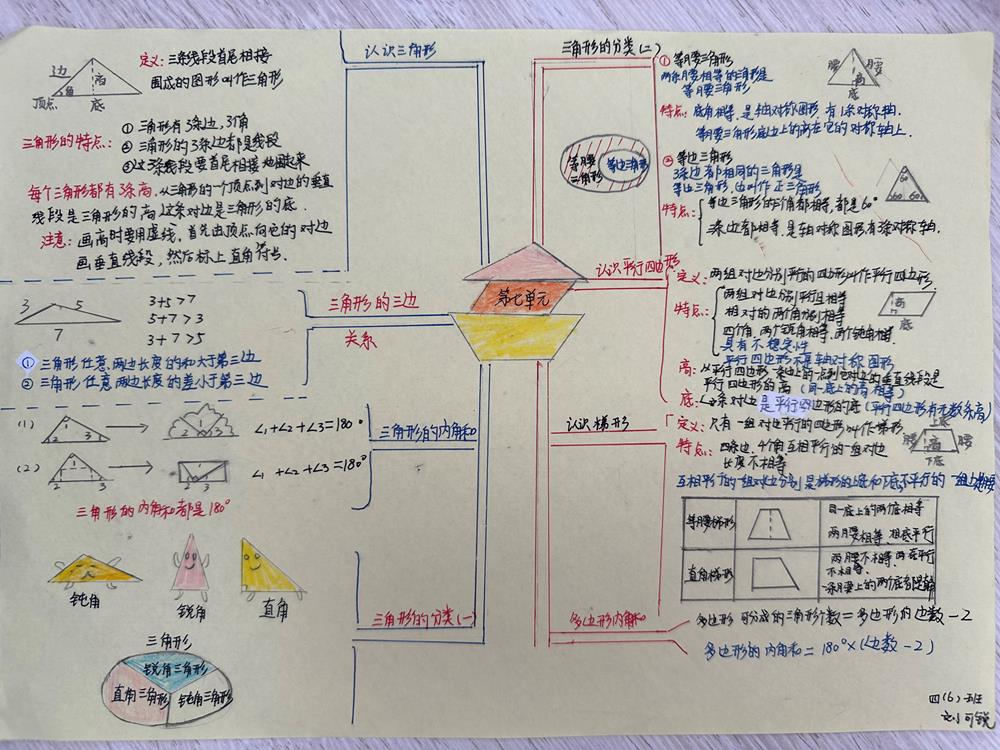 认识三角形
边
高
角
顶点
底
定义：三条线段首尾相接
围成的图形叫作三角形
三角形的特点：
① 三角形有3条边，3个角
② 三角形的3条边都是线段
③这3条线段要首尾相接地围起来
每个三角形都有3条高，从三角形的一个顶点到对边的垂直
线段是三角形的高，这条对边是三角形的底．
注意：画高时要用虚线，首先由顶点向它的对边
画垂直线段，然后标上直角符号．
三角形的三边
关系
3 5
7
3+5>7
5+7>3
3+7>5
① 三角形任意两边长度的和大于第三边
② 三角形任意两边长度的差小于第三边
三角形的内角和
(1)
1
2 3
∠1+∠2+∠3=180°
(2)
1
2 3
2 3
∠1+∠2+∠3=180°
三角形的内角和都是180°
三角形的分类(一)
钝角
锐角
直角
三角形
锐角三角形
直角三角形
钝角三角形
第七单元
三角形的分类(二)
等腰
三角形
等边三角形
① 等腰三角形
两条腰相等的三角形是
等腰三角形
腰 腰
高
底
特点：底角相等，是轴对称图形，有1条对称轴．
等腰三角形底边上的高在它的对称轴上．
② 等边三角形
3条边都相同的三角形是
等边三角形，也叫作正三角形
60
60 60
特点：等边三角形的三个角都相等，都是60°
3条边都相等，是轴对称图形有3条对称轴．
认识平行四边形
定义：两组对边分别平行的四边形叫作平行四边形．
特点：两组对边分别平行且相等
相对的两个角分别相等
四个角，两个锐角相等，两个钝角相等
具有不稳定性
平行四边形不是轴对称图形
高
底
高：从平行四边形一条边上的一点到它对边的垂直线段是
平行四边形的高（同一底上的高相等）
底：这条对边是平行四边形的底（平行四边形有无数条高）
认识梯形
定义：只有一组对边平行的四边形叫作梯形
特点：四条边，4个角互相平行的一组对边
长度不相等
上底
腰 高 腰
下底
互相平行的一组对边分别是梯形的上底和下底不平行的一组边是腰
等腰梯形
同一底上的两底相等
两腰相等，相底平行
直角梯形
两腰不相等两底平行
不相等．
一条腰上的两个底角是直角
多边形内角和
多边形可分成的三角形个数＝多边形的边数－2
多边形的内角和＝180°×(边数－2)
四(6)班